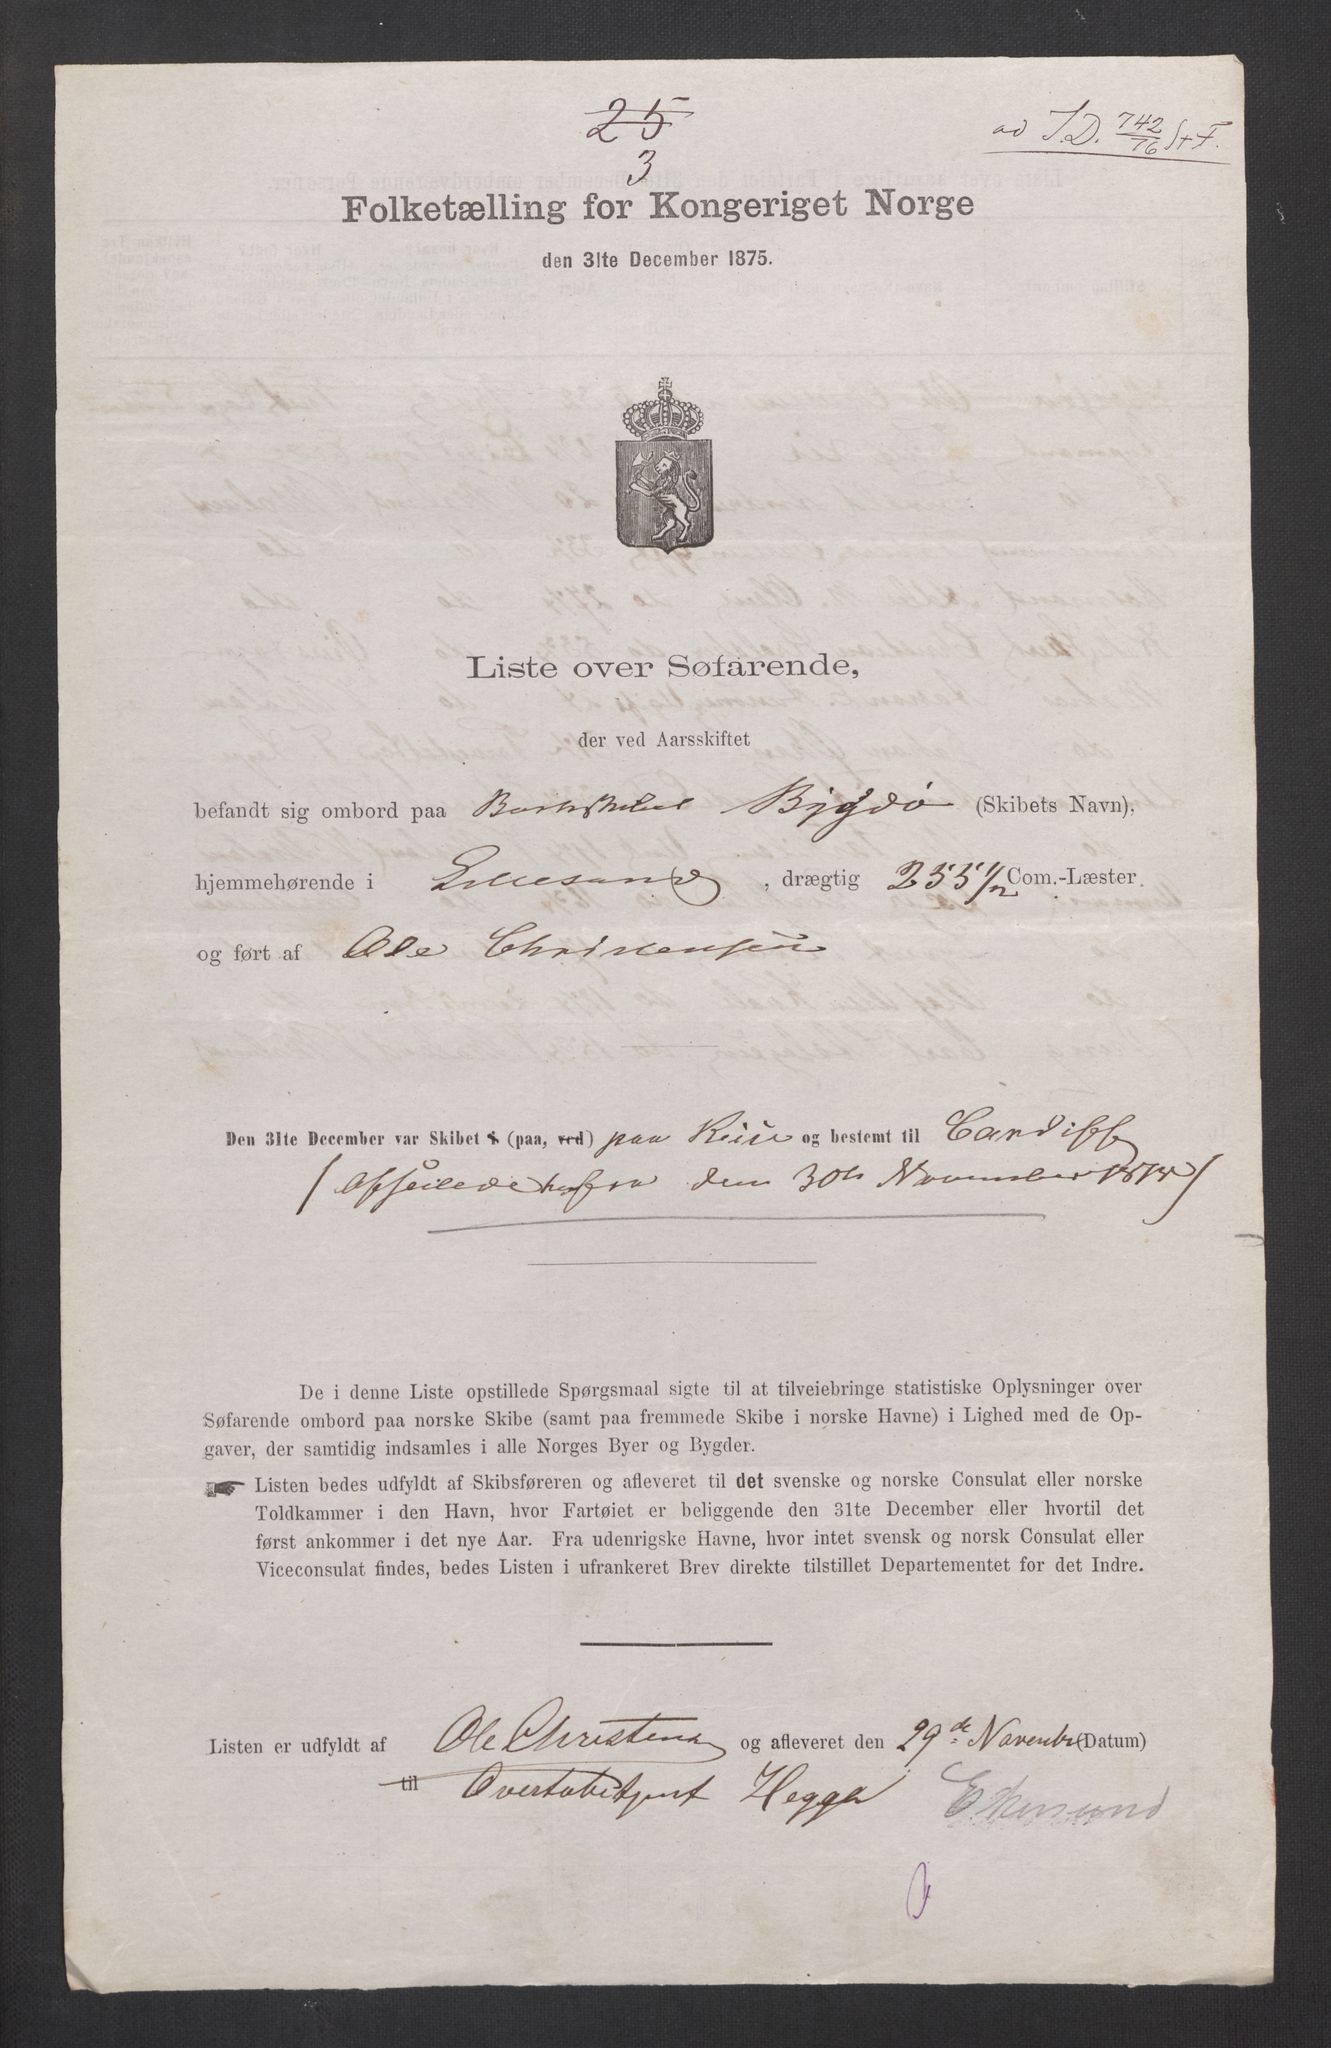 25
3
ad I.D. 742/76 S+F.
Folketælling for Kongeriget Norge
den 31te December 1875.
Liste over Søfarende,
der ved Aarsskiftet
befandt sig ombord paa Barkskibet Bygdø (Skibets Navn),
hjemmehørende i Lillesand, drægtig 255 1/2 Com.-Læster
og ført af Ole Christensen
Den 31te December var Skibet i (paa, ved) paa Reise og bestemt til Cardiff
(Afseilede herfra den 30te November 1875)
De i denne Liste opstillede Spørgsmaal sigte til at tilveiebringe statistiske Oplysninger over
Søfarende ombord paa norske Skibe (samt paa fremmede Skibe i norske Havne) i Lighed med de Op-
gaver, der samtidig indsamles i alle Norges Byer og Bygder.
Listen bedes udfyldt af Skibsføreren og afleveret til det svenske og norske Consulat eller norske
Toldkammer i den Havn, hvor Fartøiet er beliggende den 31te December eller hvortil det
først ankommer i det nye Aar. Fra udenrigske Havne, hvor intet svensk og norsk Consulat eller
Viceconsulat findes, bedes Listen i ufrankeret Brev direkte tilstillet Departementet for det Indre.
Listen er udfyldt af Ole Christensen og afleveret den 29de Novembr (Datum)
til Overtoldbetjent